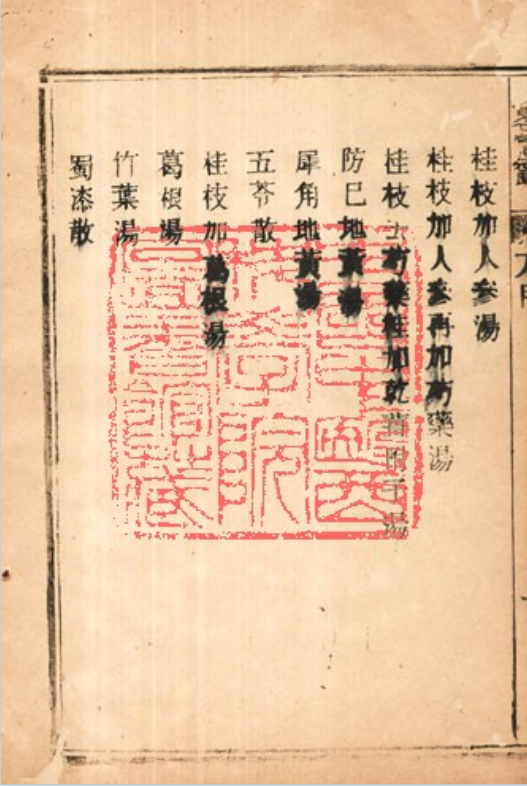 桂枝加人参湯
桂枝加人参再加芍藥湯
桂枝去芍藥桂加乾薑附子湯
防巳地黃湯
犀角地黃湯
五苓散
桂枝加葛根湯
葛根湯
竹葉湯
蜀漆散